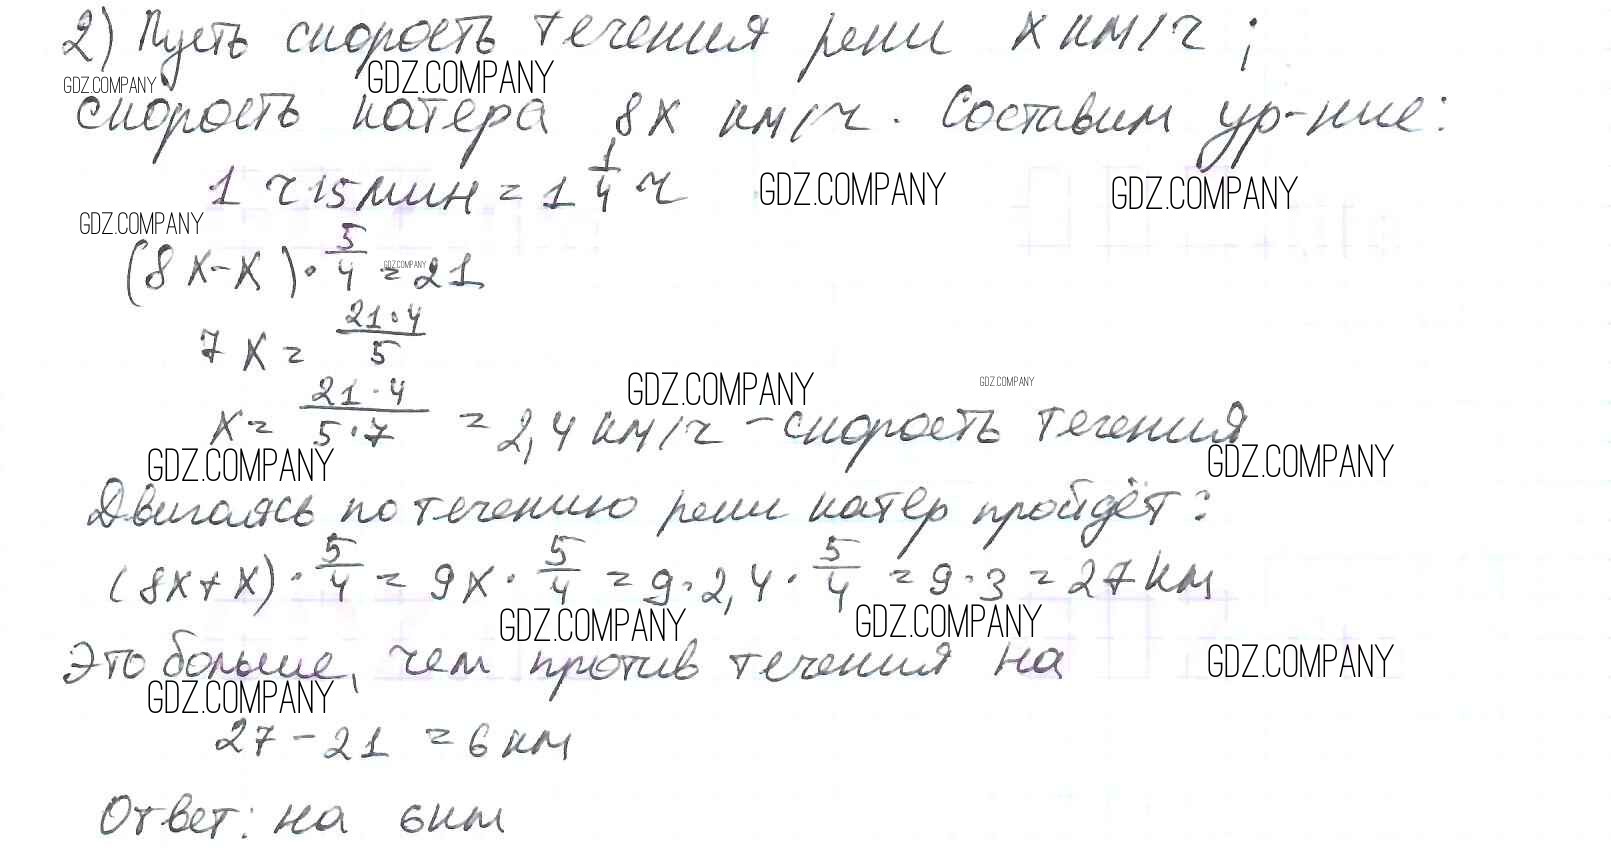 2) Пусть скорость течения реки x км/ч;
GDZ.COMPANY GDZ.COMPANY
скорость катера 8x км/ч. Составим ур-ние:
1 ч 15 мин = 1 1/4 ч GDZ.COMPANY GDZ.COMPANY
GDZ.COMPANY
(8x-x)·5/4 = 21 GDZ.COMPANY
7x = 21·4/5
GDZ.COMPANY GDZ.COMPANY
x = 21·4/5·7 = 2,4 км/ч - скорость течения
GDZ.COMPANY GDZ.COMPANY
Двигаясь по течению реки катер пройдёт:
(8x+x)·5/4 = 9x·5/4 = 9·2,4·5/4 = 9·3 = 27 км
GDZ.COMPANY GDZ.COMPANY
Это больше, чем против течения на GDZ.COMPANY
GDZ.COMPANY
27-21 = 6 км
Ответ: на 6 км